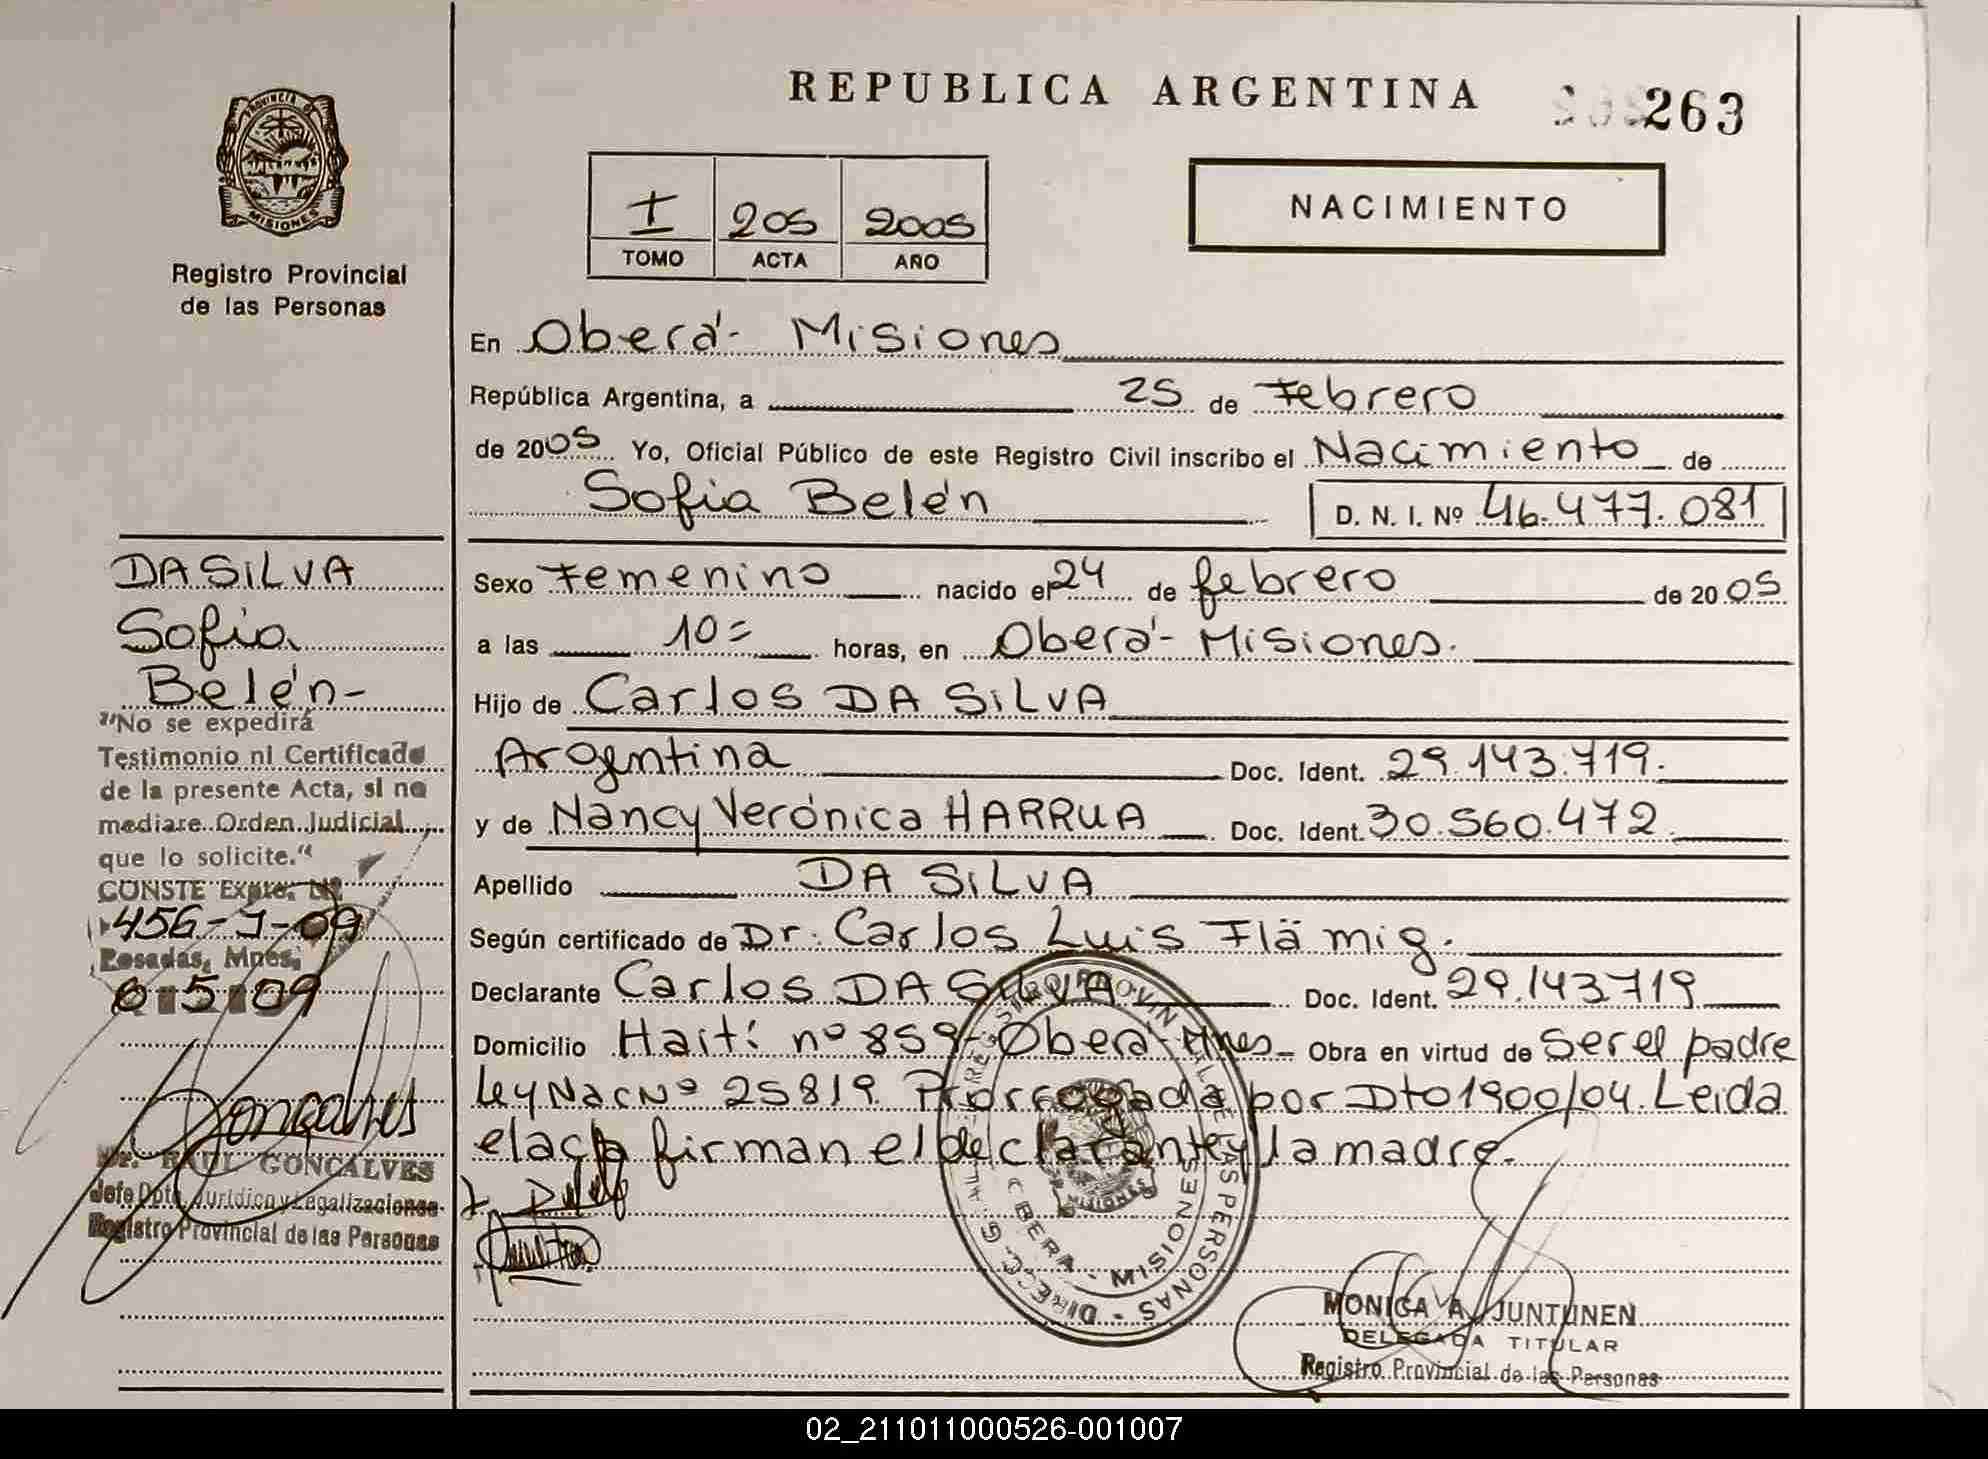 REPUBLICA ARGENTINA
263
PROVINCIA DE
MISIONES
Registro Provincial
de las Personas
I 205 2005
TOMO ACTA AÑO
NACIMIENTO
En Oberá- Misiones
República Argentina, a 25 de Febrero
de 2005 Yo, Oficial Público de este Registro Civil inscribo el Nacimiento de
Sofia Belén D. N. I. Nº 46.477.081
Sexo Femenino nacido el 24 de febrero de 2005
a las 10= horas, en Oberá- Misiones.
Hijo de Carlos DA SILVA
Argentina Doc. Ident. 29.143.719.
y de Nancy Verónica HARRUA Doc. Ident. 30.560.472
Apellido DA SILVA
Según certificado de Dr. Carlos Luis Flämig.
Declarante Carlos DA SILVA Doc. Ident. 29.143719
Domicilio Haití nº 859- Oberá- Mnes- Obra en virtud de Ser el padre
Ley Nac Nº 25819. Prorrogada por Dto 1900/04. Leida
el acta firman el declarante y la madre.
DA SILVA
Sofia
Belén-
"No se expedirá
Testimonio ni Certificado
de la presente Acta, si no
mediare Orden Judicial
que lo solicite."
CONSTE Expte. Nº
456-J-09
Posadas, Mnes,
6 5 09
Goncalves
Dr. RAUL GONCALVES
Jefe Dpto. Jurídico y Legalizaciones
Registro Provincial de las Personas
OBERA - MISIONES
MONICA A. JUNTUNEN
DELEGADA TITULAR
Registro Provincial de las Personas
02_211011000526-001007